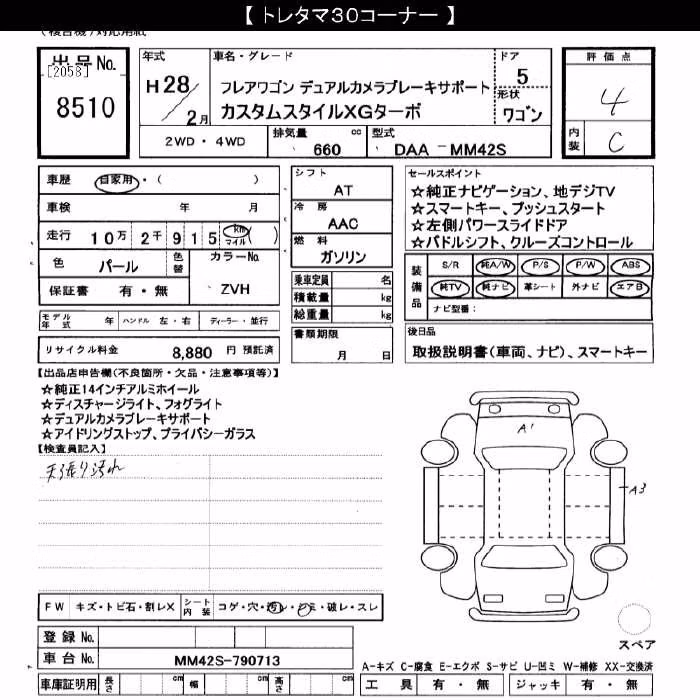 【 トレタマ30コーナー 】
出品No.
[2058]
8510
年式
H 28 / 2月
車名・グレード
フレアワゴン デュアルカメラブレーキサポート
カスタムスタイルXGターボ
ドア
5
形状
ワゴン
評価点
4
内装
C
2WD・4WD
排気量 660 cc
型式 DAA － MM42S
車歴 自家用・( )
車検 年 月
走行 10万 2千 9 1 5 (km マイル)
色 パール
色替
カラーNo.
ZVH
保証書 有・無
モデル年式 年
ハンドル 左・右
ディーラー・並行
リサイクル料金 8,880 円 預託済
シフト
AT
冷房
AAC
燃料
ガソリン
乗車定員 名
積載量 kg
総重量 kg
書類期限
月 日
セールスポイント
☆純正ナビゲーション、地デジTV
☆スマートキー、プッシュスタート
☆左側パワースライドドア
☆パドルシフト、クルーズコントロール
装備品
S/R 純A/W P/S P/W ABS
純TV 純ナビ 革シート 外ナビ エアB
ナビ型番：
後日品
取扱説明書(車両、ナビ)、スマートキー
【出品店申告欄(不良箇所・欠品・注意事項等)】
☆純正14インチアルミホイール
☆ディスチャージライト、フォグライト
☆デュアルカメラブレーキサポート
☆アイドリングストップ、プライバシーガラス
【検査員記入】
天張り汚れ
A1
A3
スペア
FW キズ・トビ石・割レX
シート内装 コゲ・穴・汚レ・シミ・破レ・スレ
登録 No.
車台 No. MM42S-790713
車庫証明用 長さ cm 幅 cm 高さ cm
A-キズ C-腐食 E-エクボ S-サビ U-凹ミ W-補修 XX-交換済
工具 有・無 ジャッキ 有・無